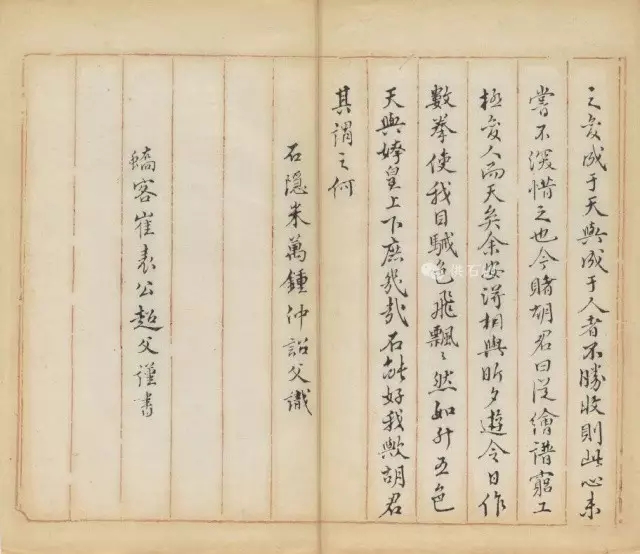 之变成于天與成于人者不勝收則此心未
嘗不深惜之也今睹胡君曰從繪譜窮工
極变人而天矣余安得相與昕夕遊今日作
數拳使我目駴色飛飄〻然如升五色
天與媧皇上下庶幾哉石能好我歟胡君
其謂之何
石隱米萬鍾仲詔父識
客崔公超父謹書